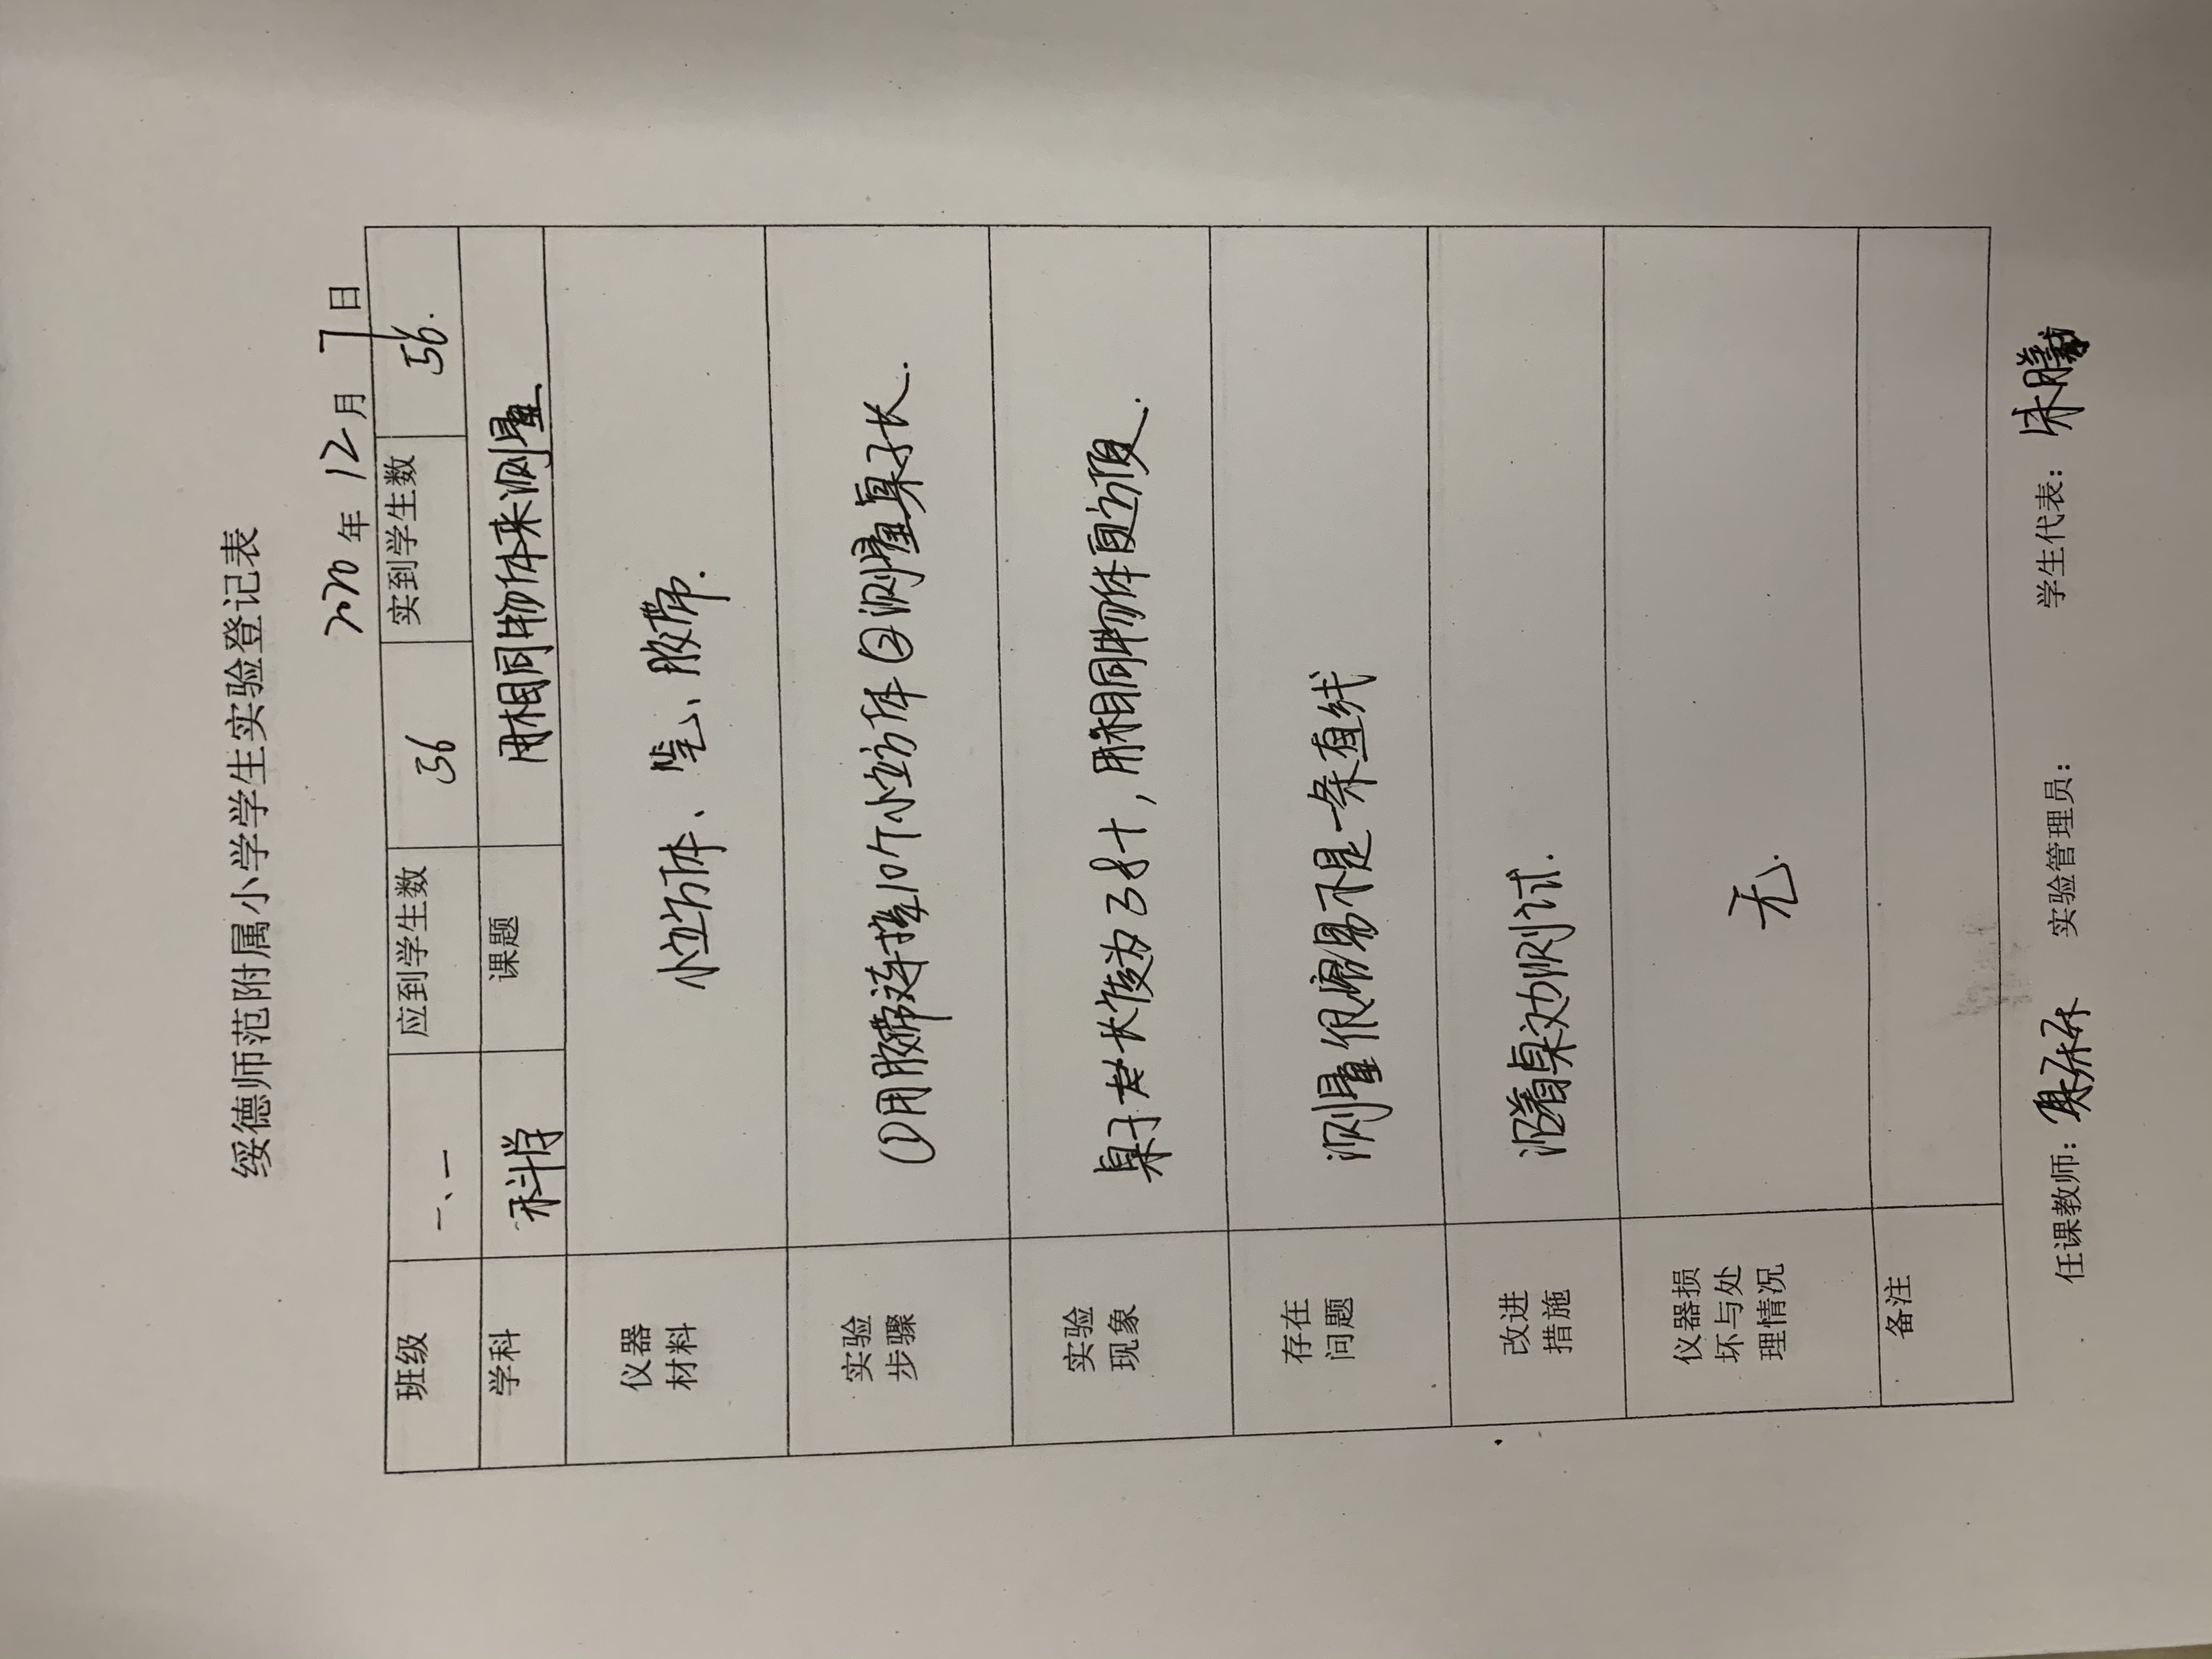 绥德师范附属小学学生实验登记表
2020年12月7日
班级 一、一 应到学生数 56 实到学生数 56.
学科 科学 课题 用相同物体来测量
仪器材料 小立方体、笔、胶带.
实验步骤 ①用胶带连接10个小立方体②测量桌子长.
实验现象 桌子长度为3个十,用相同物体更方便.
存在问题 测量很容易不是一条直线
改进措施 沿着桌边测试.
仪器损坏与处理情况 无.
备注
任课教师: 实验管理员: 学生代表: